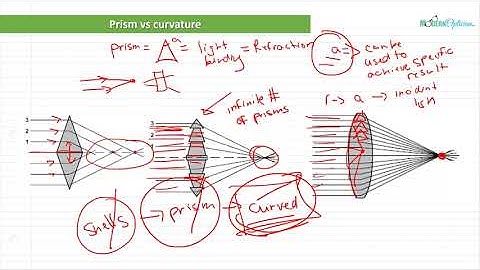 Prism vs curvature
MODERN Optician
a
prism = = light = Refraction
bending
a = can be
used to
achieve specific
result
r → a → incident
light
infinite #
of prisms
3
2
1
3
2
1
shells → prism → curved